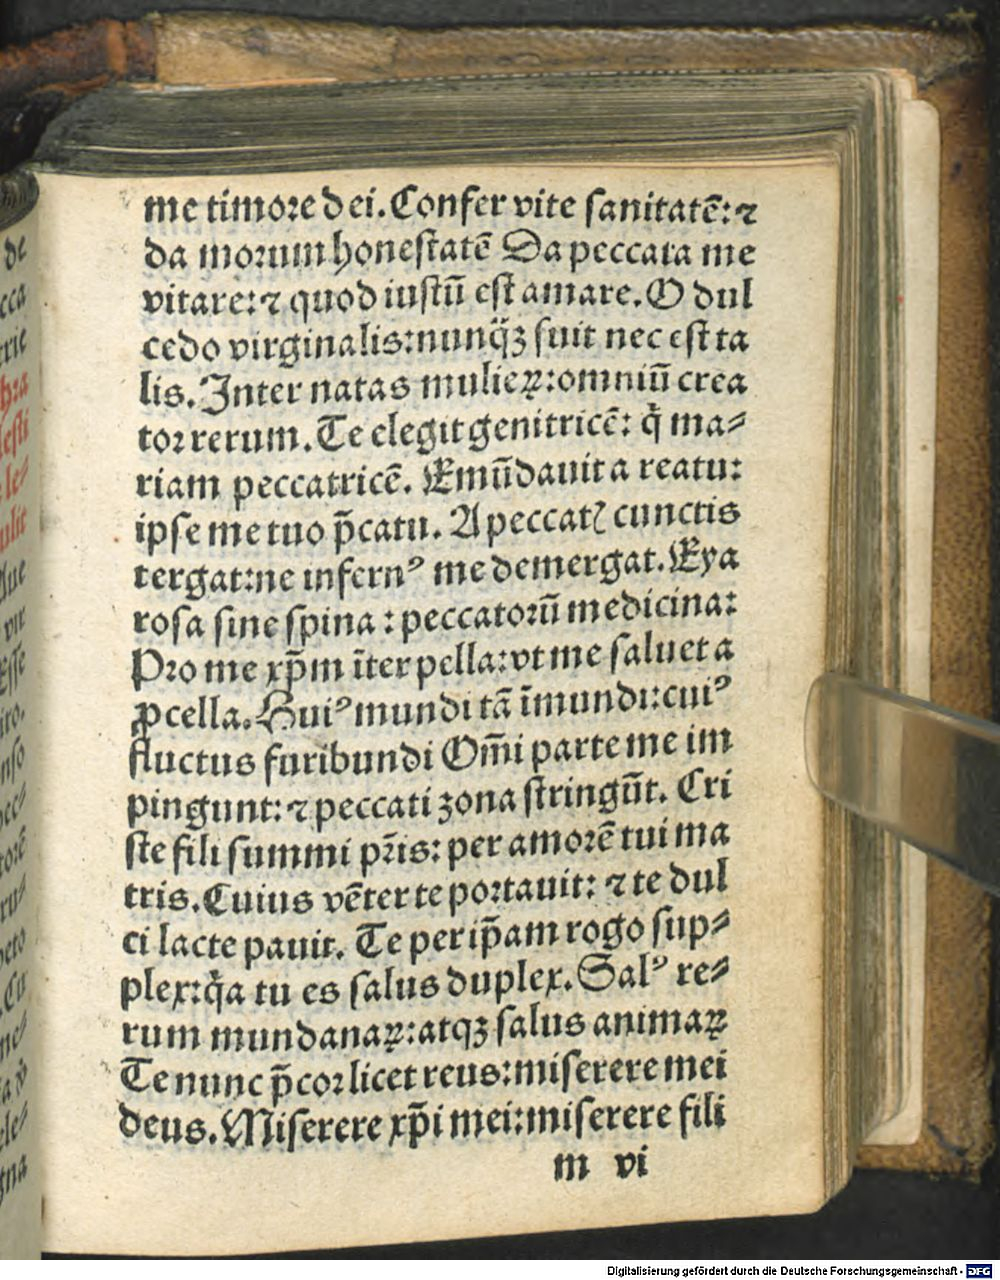 me timore dei. Confer vite sanitatē: ⁊
da morum honestatē Da peccata me
vitare: ⁊ quod iustū est amare. O dul
cedo virginalis: nunq̄ꝫ fuit nec est ta
lis. Inter natas mulieꝝ: omniū crea
tor rerum. Te elegit genitricē: q̇ ma⸗
riam peccatricē. Emūdauit a reatu:
ipse me tuo p̄catu. A peccatꝭ cunctis
tergat: ne infernꝰ me demergat. Eya
rosa sine spina: peccatorū medicina:
Pro me xp̄m īter pella: vt me saluet a
ꝓcella. Huiꝰ mundi tā īmundi: cuiꝰ
fluctus furibundi Om̄i parte me im
pingunt: ⁊ peccati zona stringūt. Cri
ste fili summi pr̄is: per amorē tui ma
tris. Cuius vēter te portauit: ⁊ te dul
ci lacte pauit. Te per ip̄am rogo sup⸗
plex: q̇a tu es salus duplex. Salꝰ re⸗
rum mundanaꝝ: atqꝫ salus animaꝝ
Te nunc p̄cor licet reus: miserere mei
deus. Miserere xp̄i mei: miserere fili
m vi
de
cca
rie
lesti
le⸗
ulit
Aue
vir
Esse
iro.
nso
pec⸗
torē
ru⸗
peto
Cū
ne⸗
ele⸗
gna
Digitalisierung gefördert durch die Deutsche Forschungsgemeinschaft - DFG